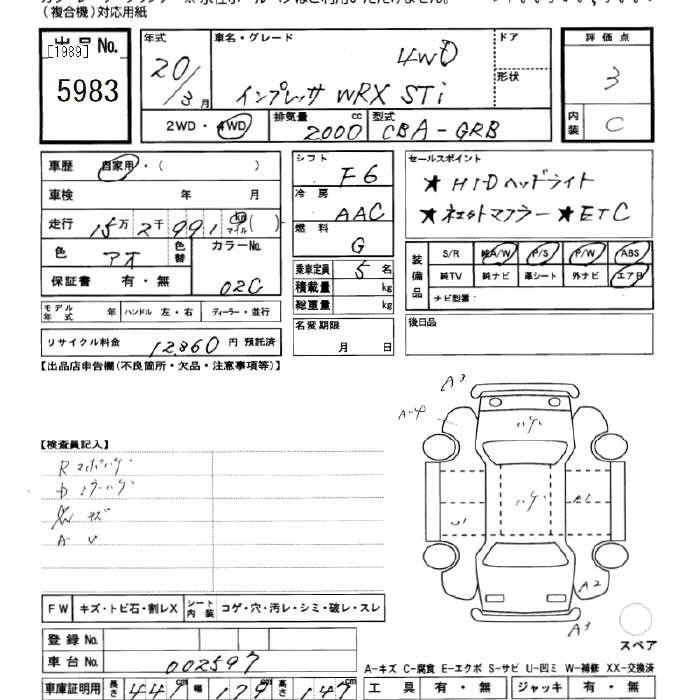 (複合機)対応用紙
出品No.
[1989]
5983
年式
20/3月
車名・グレード
4WD
インプレッサ WRX STi
ドア
形状
2WD・4WD
排気量 2000 cc
型式 CBA-GRB
評価点
3
内装
C
車歴 自家用・( )
車検 年 月
走行 15万2千991 km マイル ( )
色 アオ
色替
カラーNo.
02C
保証書 有・無
シフト
F6
冷房
AAC
燃料
G
乗車定員 5 名
積載量 kg
総重量 kg
セールスポイント
★HIDヘッドライト
★ ★ETC
装備品
S/R 純A/W P/S P/W ABS
純TV 純ナビ 革シート 外ナビ エアB
ナビ型番:
モデル年式 年 ハンドル 左・右 ディーラー・並行
名変期限
月 日
後日品
リサイクル料金 12,860 円 預託済
【出品店申告欄(不良箇所・欠品・注意事項等)】
A3
【検査員記入】
ハゲ
ハゲ
A2
A3
FW キズ・トビ石・割レX シート内装 コゲ・穴・汚レ・シミ・破レ・スレ
登録No.
車台No. 002597
スペア
A-キズ C-腐食 E-エクボ S-サビ U-凹ミ W-補修 XX-交換済
車庫証明用 長さ 447cm 幅 179cm 高さ 147
工具 有・無 ジャッキ 有・無